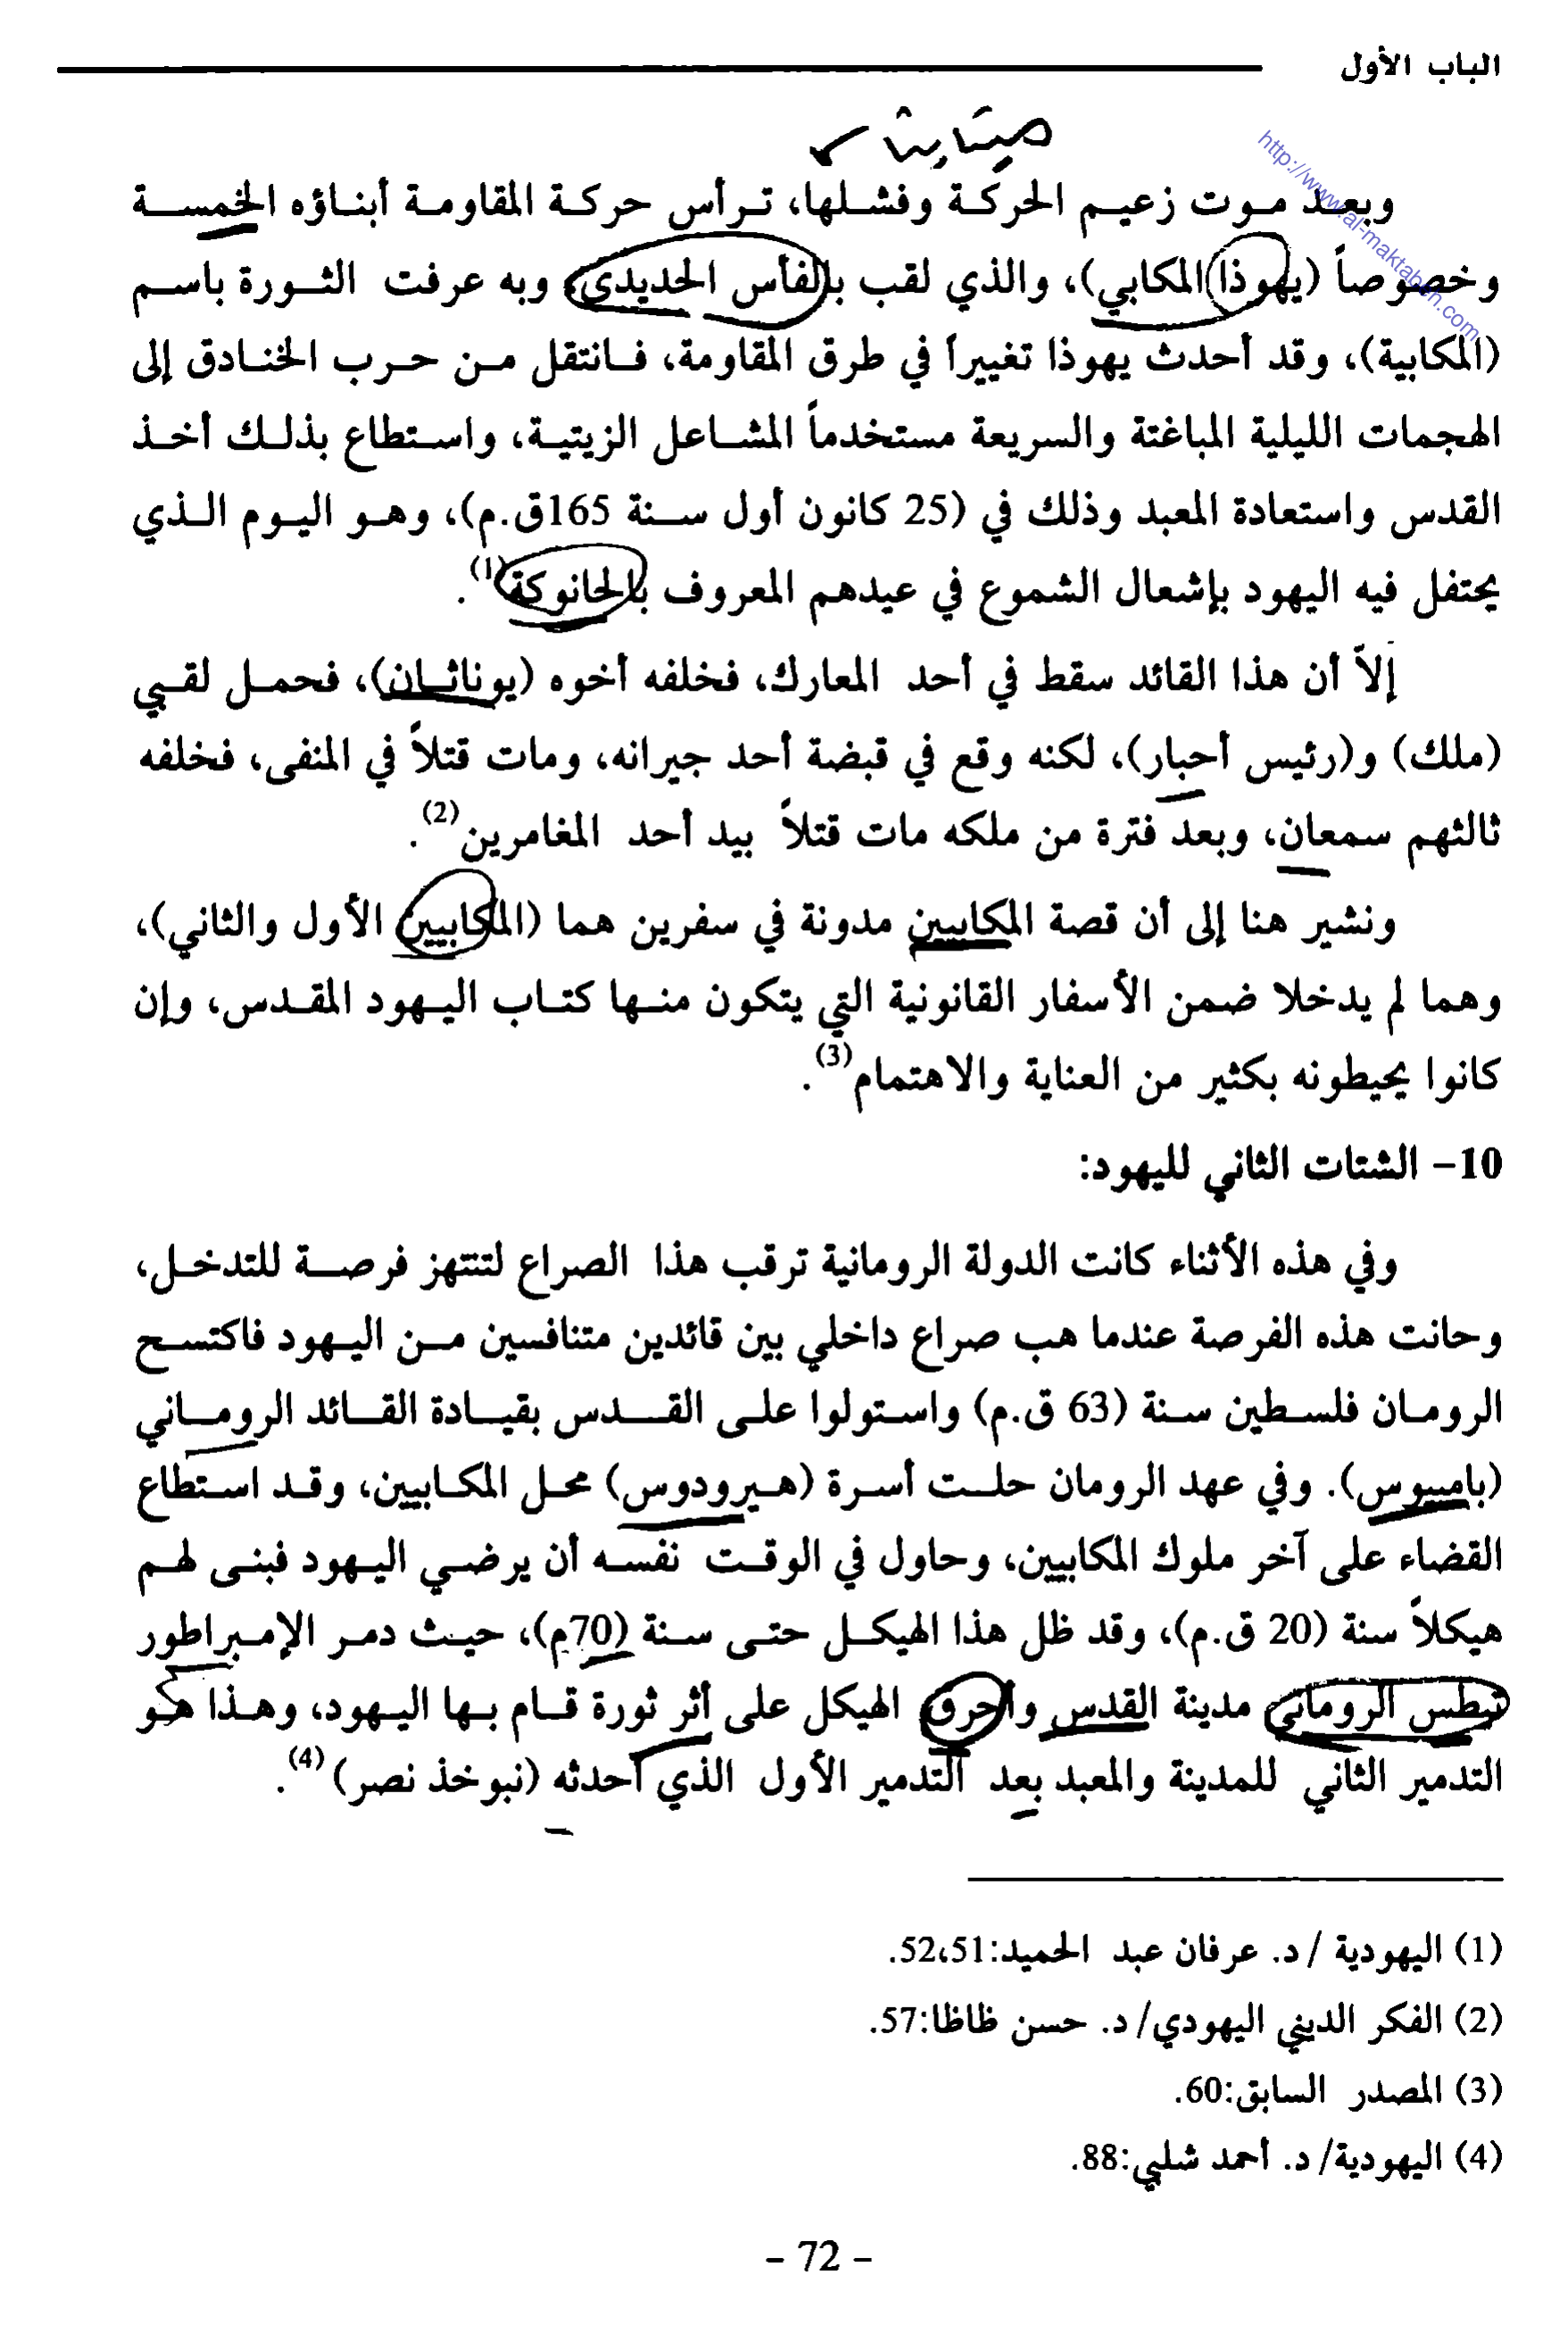 الباب الأول
http://www.al-maktabeh.com
وبعد موت زعيم الحركة وفشلها، ترأس حركة المقاومة أبناؤه الخمسة
وخصوصاً (يهوذا المكابي)، والذي لقب بالفأس الحديدي، وبه عرفت الثورة باسم
(المكابية)، وقد أحدث يهوذا تغييراً في طرق المقاومة، فانتقل من حرب الخنادق إلى
الهجمات الليلية المباغتة والسريعة مستخدماً المشاعل الزيتية، واستطاع بذلك أخذ
القدس واستعادة المعبد وذلك في (25 كانون أول سنة 165ق.م)، وهو اليوم الذي
يحتفل فيه اليهود بإشعال الشموع في عيدهم المعروف بالحانوكة(1).
إلاّ أن هذا القائد سقط في أحد المعارك، فخلفه أخوه (يوناثان)، فحمل لقبي
(ملك) و(رئيس أحبار)، لكنه وقع في قبضة أحد جيرانه، ومات قتلاً في المنفى، فخلفه
ثالثهم سمعان، وبعد فترة من ملكه مات قتلاً بيد أحد المغامرين(2).
ونشير هنا إلى أن قصة المكابيين مدونة في سفرين هما (المكابيين الأول والثاني)،
وهما لم يدخلا ضمن الأسفار القانونية التي يتكون منها كتاب اليهود المقدس، وإن
كانوا يحيطونه بكثير من العناية والاهتمام(3).
10- الشتات الثاني لليهود:
وفي هذه الأثناء كانت الدولة الرومانية ترقب هذا الصراع لتنتهز فرصة للتدخل،
وحانت هذه الفرصة عندما هب صراع داخلي بين قائدين متنافسين من اليهود فاكتسح
الرومان فلسطين سنة (63 ق.م) واستولوا على القدس بقيادة القائد الروماني
(بامبيوس). وفي عهد الرومان حلت أسرة (هيرودوس) محل المكابيين، وقد استطاع
القضاء على آخر ملوك المكابيين، وحاول في الوقت نفسه أن يرضي اليهود فبنى لهم
هيكلاً سنة (20 ق.م)، وقد ظل هذا الهيكل حتى سنة (70م)، حيث دمر الإمبراطور
تيطس الروماني مدينة القدس وأحرق الهيكل على أثر ثورة قام بها اليهود، وهذا هو
التدمير الثاني للمدينة والمعبد بعد التدمير الأول الذي أحدثه (نبوخذ نصر)(4).
(1) اليهودية / د. عرفان عبد الحميد:51،52.
(2) الفكر الديني اليهودي/ د. حسن ظاظا:57.
(3) المصدر السابق:60.
(4) اليهودية/ د. أحمد شلبي:88.
- 72 -